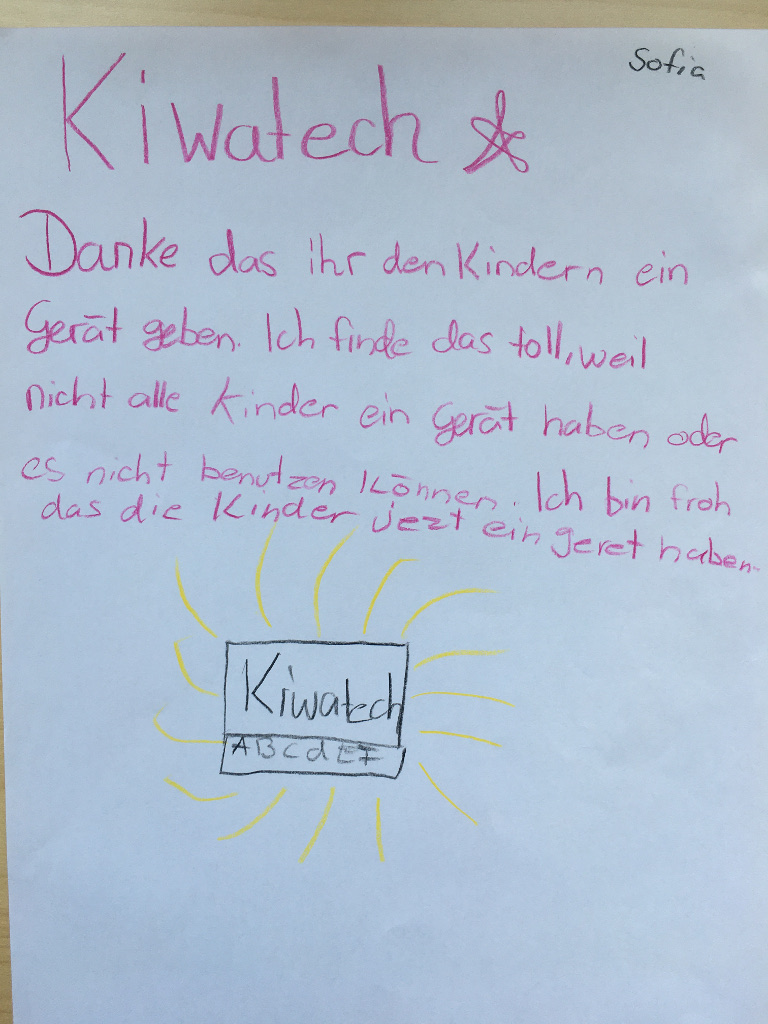 Sofia
Kiwatech
Danke das ihr den Kindern ein
Gerät geben. Ich finde das toll, weil
nicht alle Kinder ein Gerät haben oder
es nicht benutzen können. Ich bin froh
das die Kinder jezt ein geret haben.
Kiwatech
ABCdEF